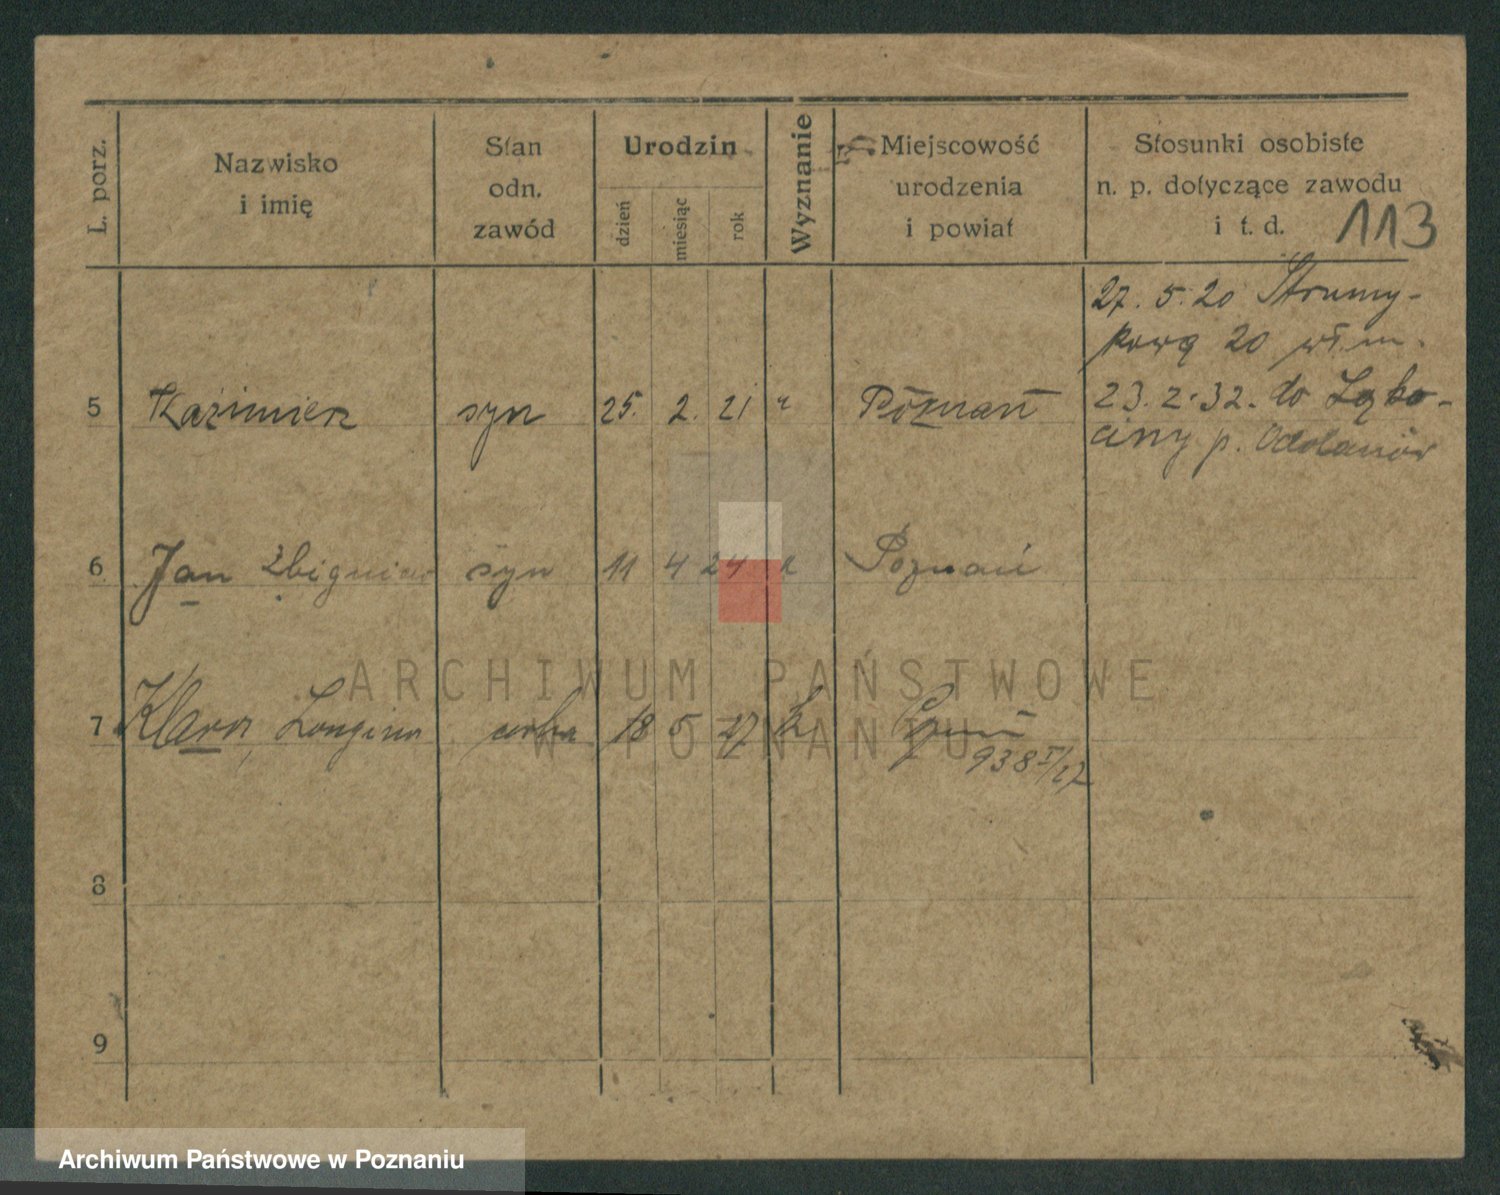 L. porz.
Nazwisko
i imię
Stan
odn.
zawód
Urodzin
dzień
miesiąc
rok
Wyznanie
Miejscowość
urodzenia
i powiat
Stosunki osobiste
n. p. dotyczące zawodu
i t. d.
113
27. 5. 20 Strumy-
kowa 20
5 Kaźimierz syn 25. 2. 21 " Poznań
23. 2. 32. do Łąko-
ciny p. Odolanów
6 Jan Zbigniew syn 11 4 24 Poznań
7 Klara, Longina córka 18 5 27 k
938 I/27
8
9
ARCHIWUM PAŃSTWOWE
W POZNANIU
Archiwum Państwowe w Poznaniu